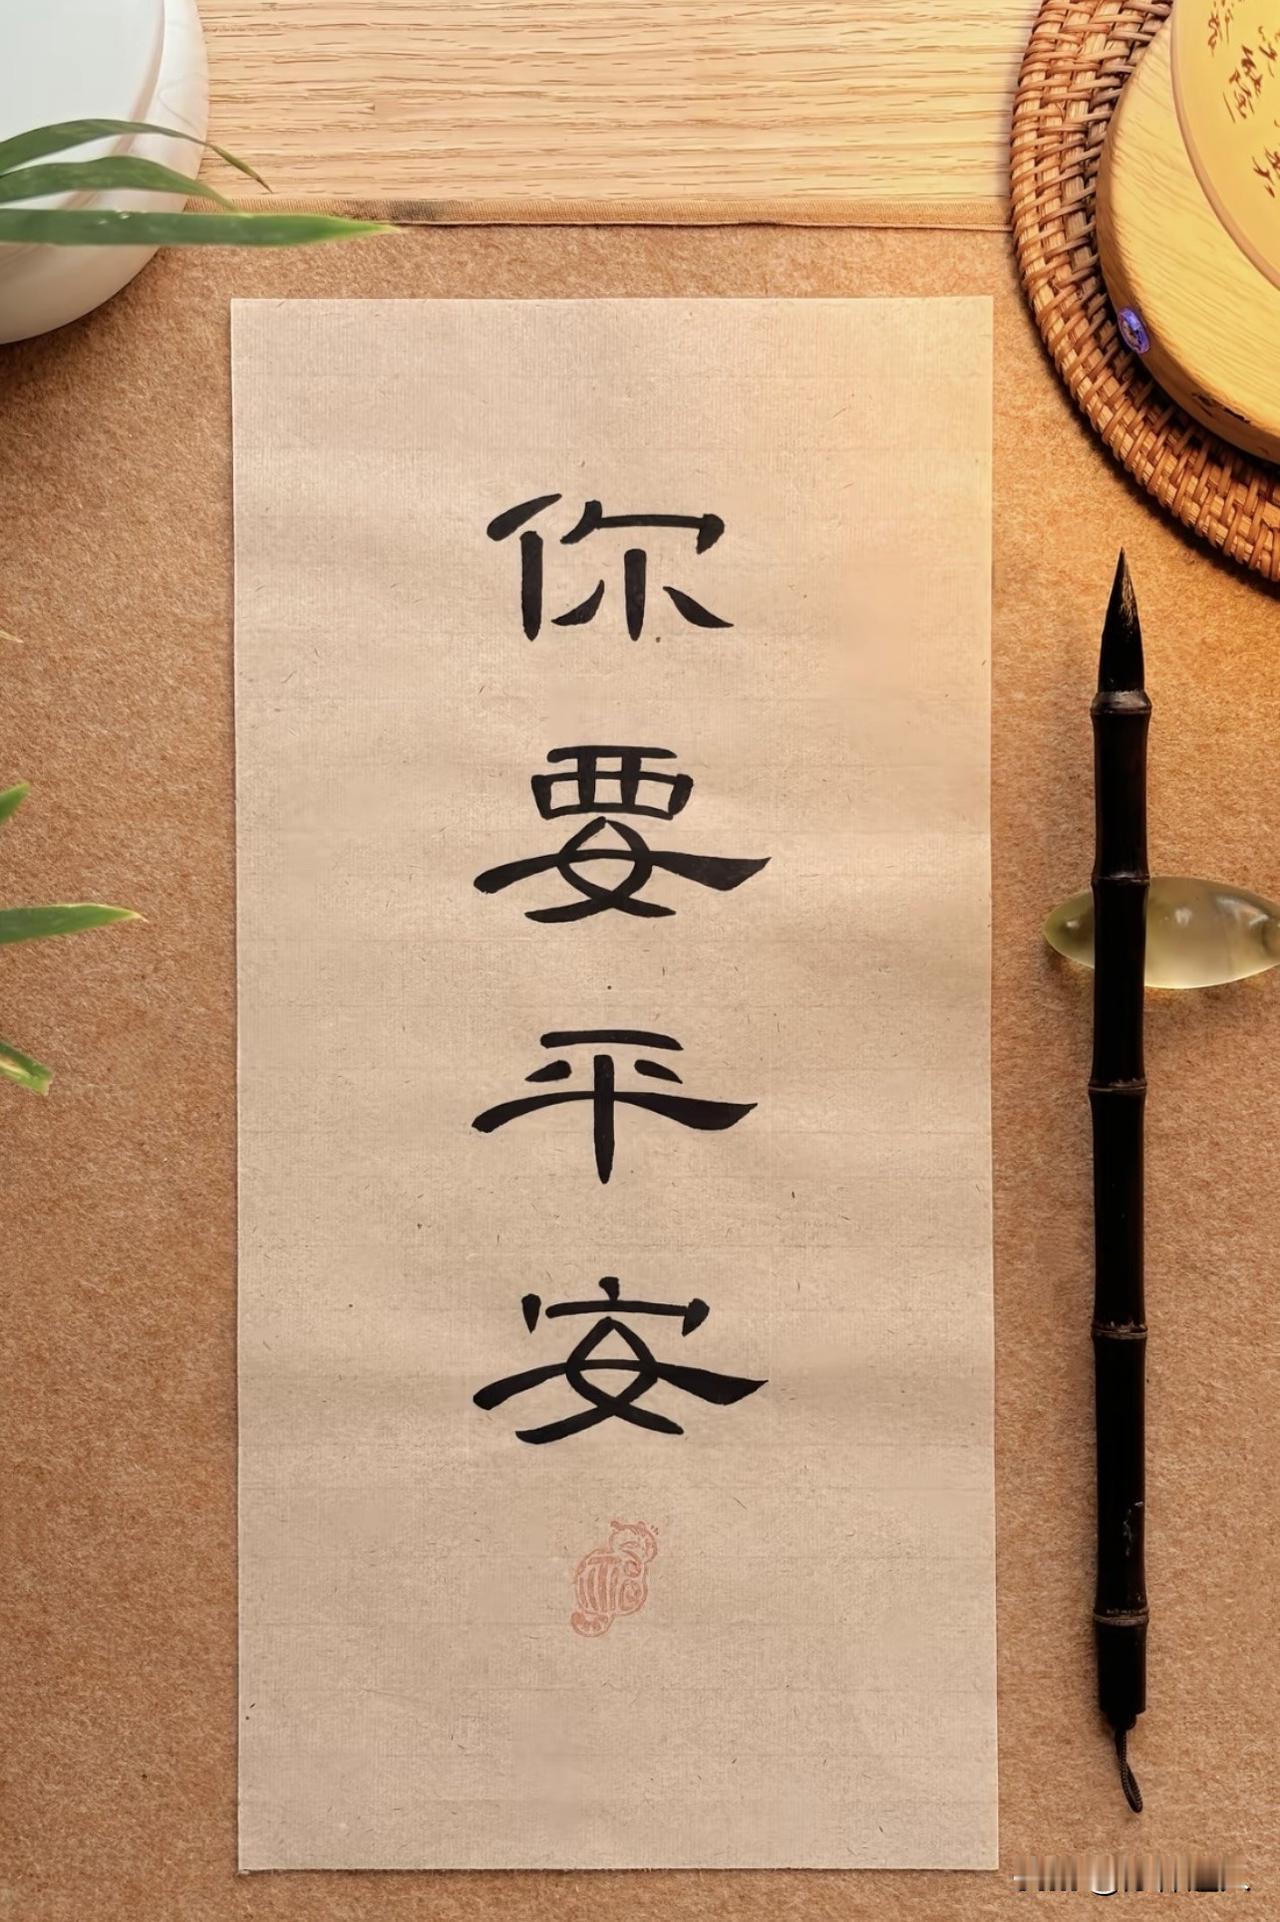 你要平安